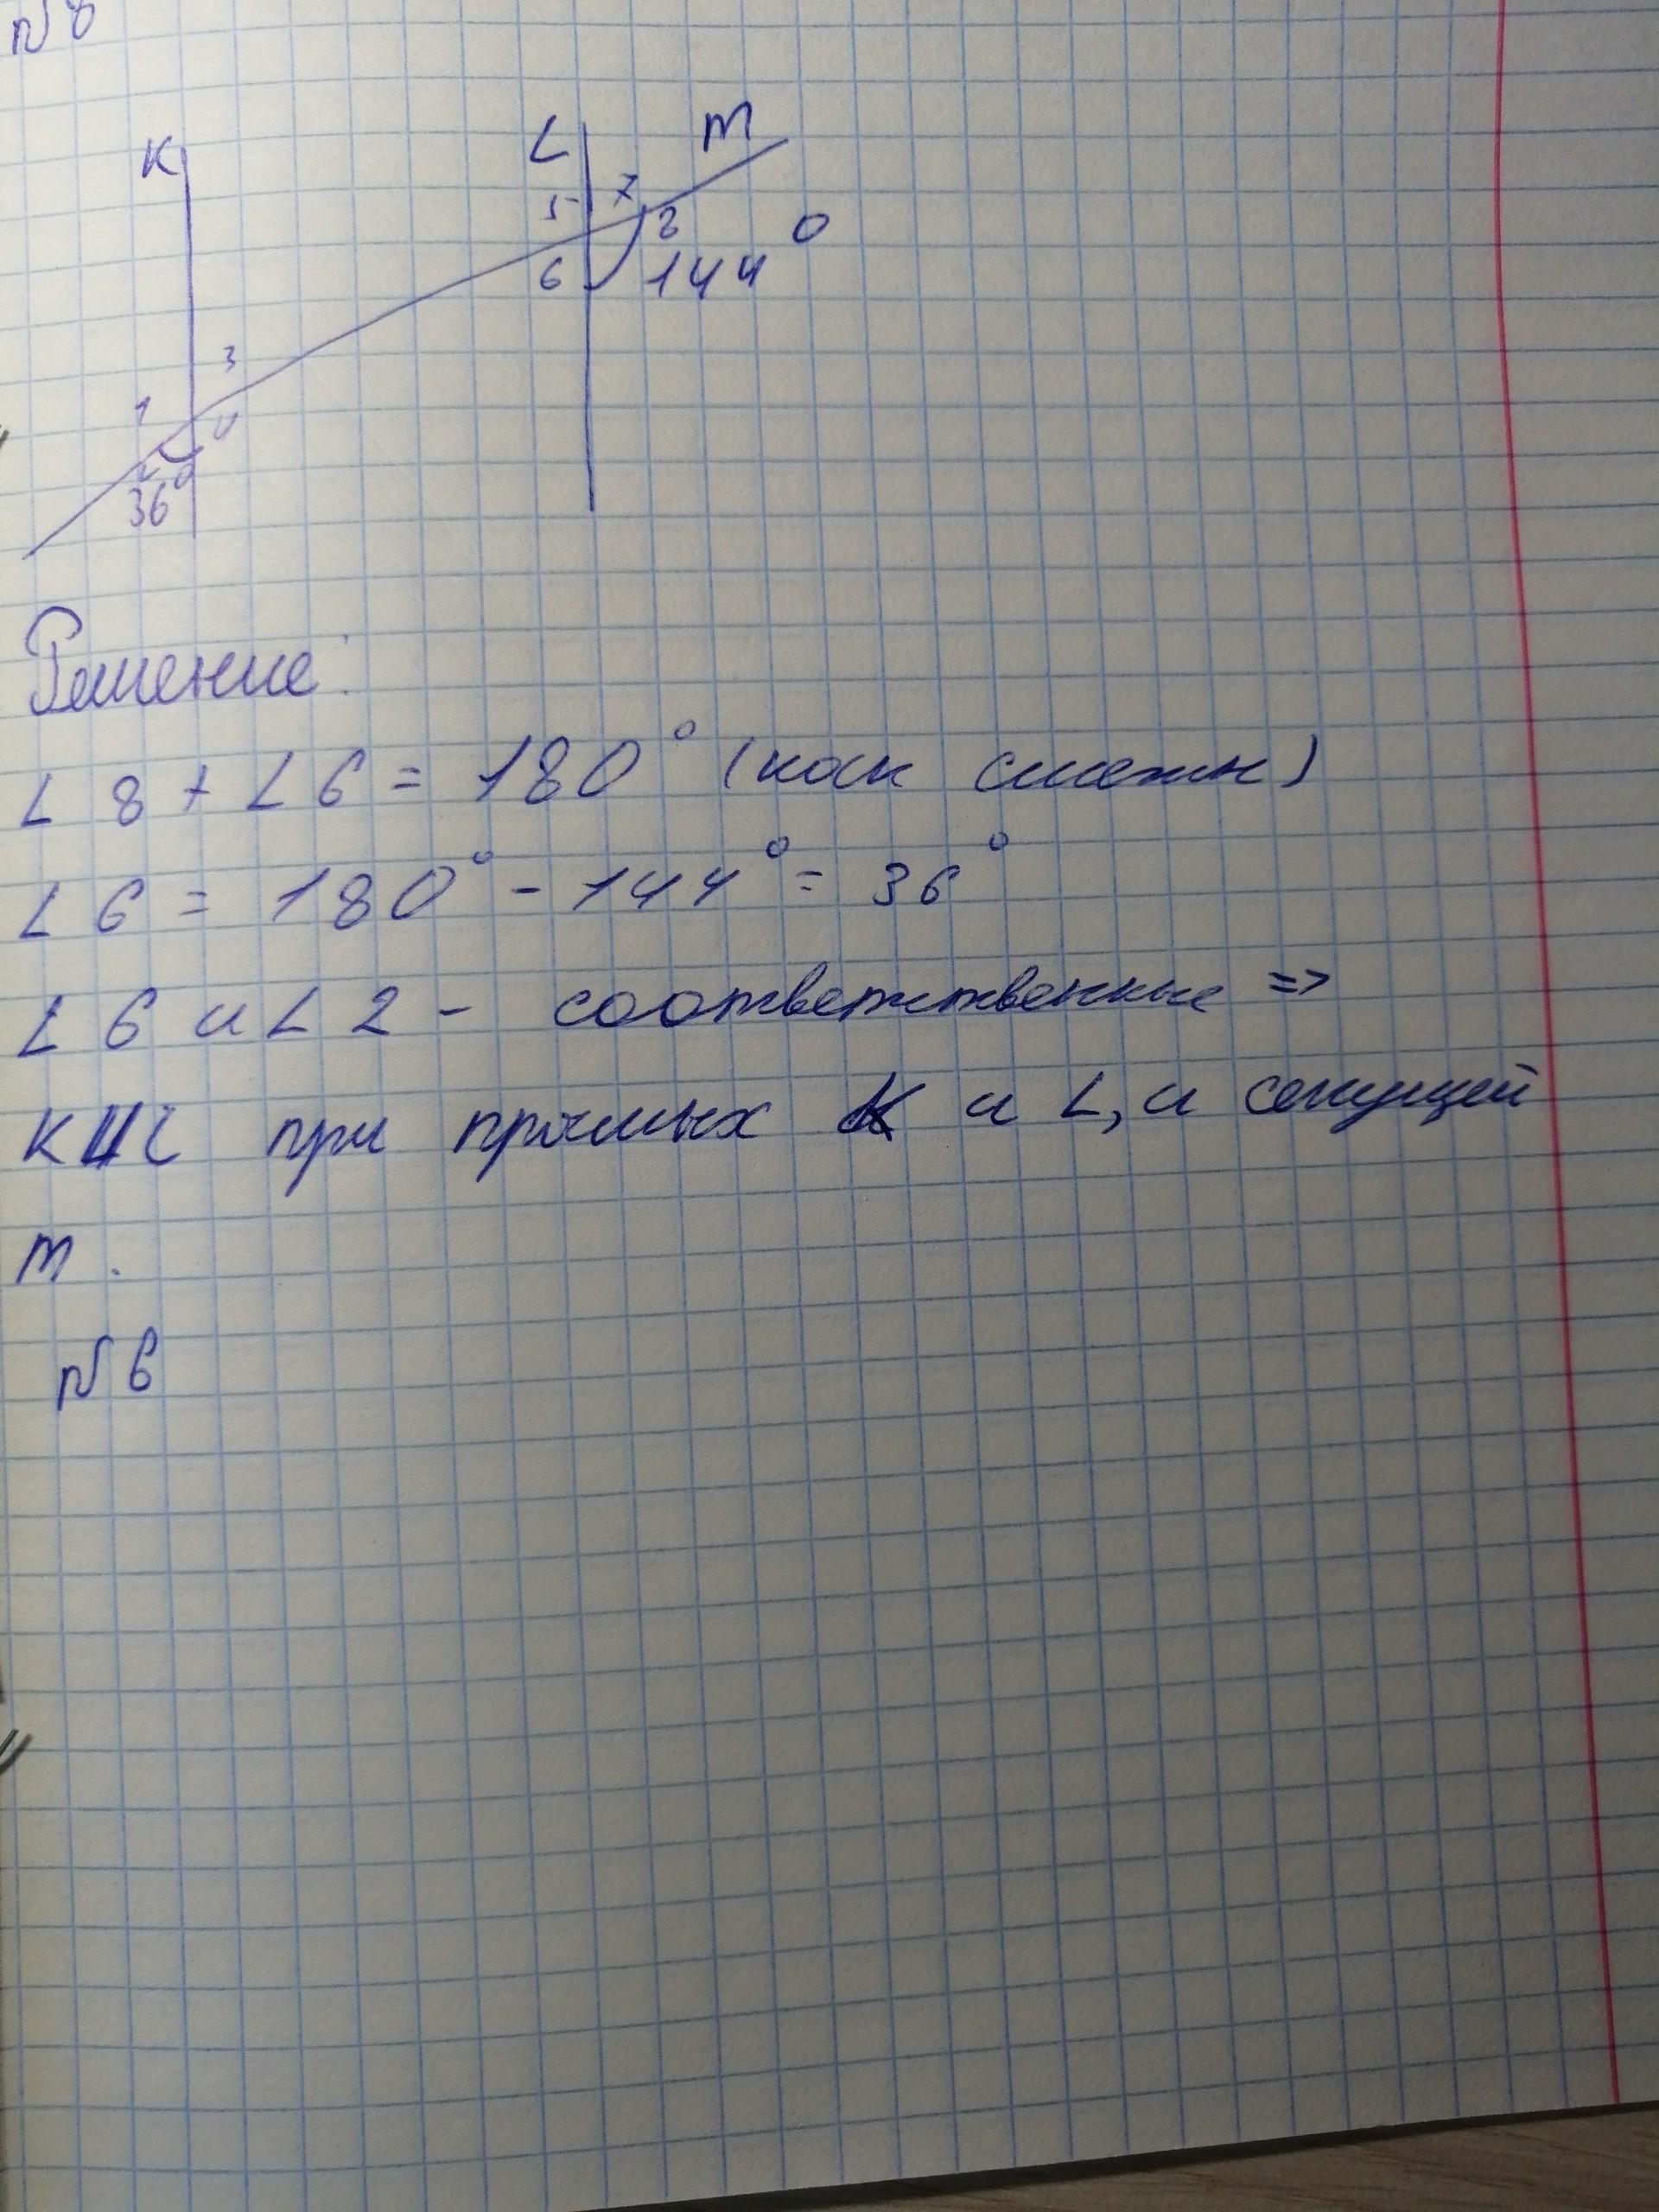 №8
K
L
m
5
7
8
0
6
144
3
1
4
2
36°
Решение:
∠8 + ∠6 = 180° (как смежн)
∠6 = 180° - 144° = 36°
∠6 и ∠2 - соответственные =>
K||L при прямых K и L, и секущей
m.
№6